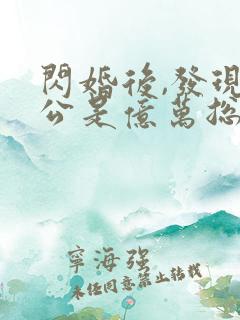 閃婚後,發現
公是億萬总
寧海强
未经同意禁止转载